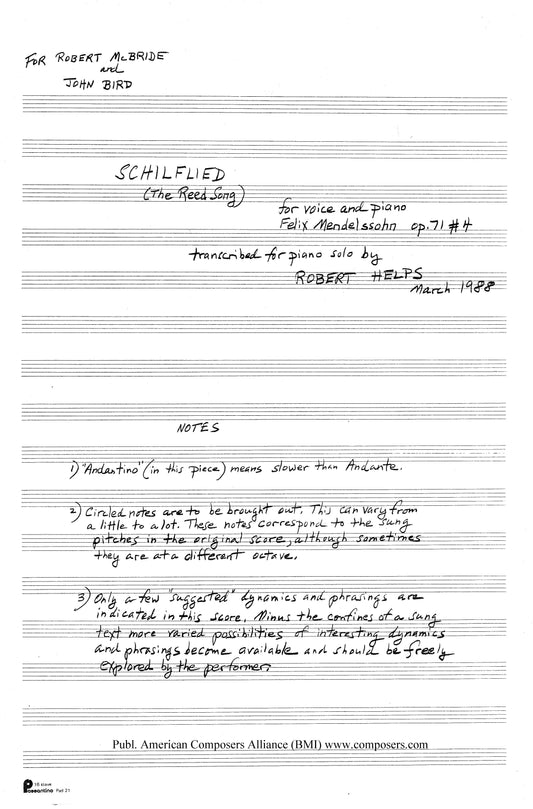 FOR ROBERT McBRIDE
and
JOHN BIRD
SCHILFLIED
(The Reed Song)
for voice and piano
Felix Mendelssohn op. 71 #4
transcribed for piano solo by
ROBERT HELPS
March 1988
NOTES
1) "Andantino" (in this piece) means slower than Andante.
2) Circled notes are to be brought out. This can vary from
a little to a lot. These notes correspond to the sung
pitches in the original score, although sometimes
they are at a different octave.
3) Only a few "suggested" dynamics and phrasings are
indicated in this score. Minus the confines of a sung
text more varied possibilities of interesting dynamics
and phrasings become available and should be freely
explored by the performer.
Publ. American Composers Alliance (BMI) www.composers.com
18 stave
Passantino Part 21